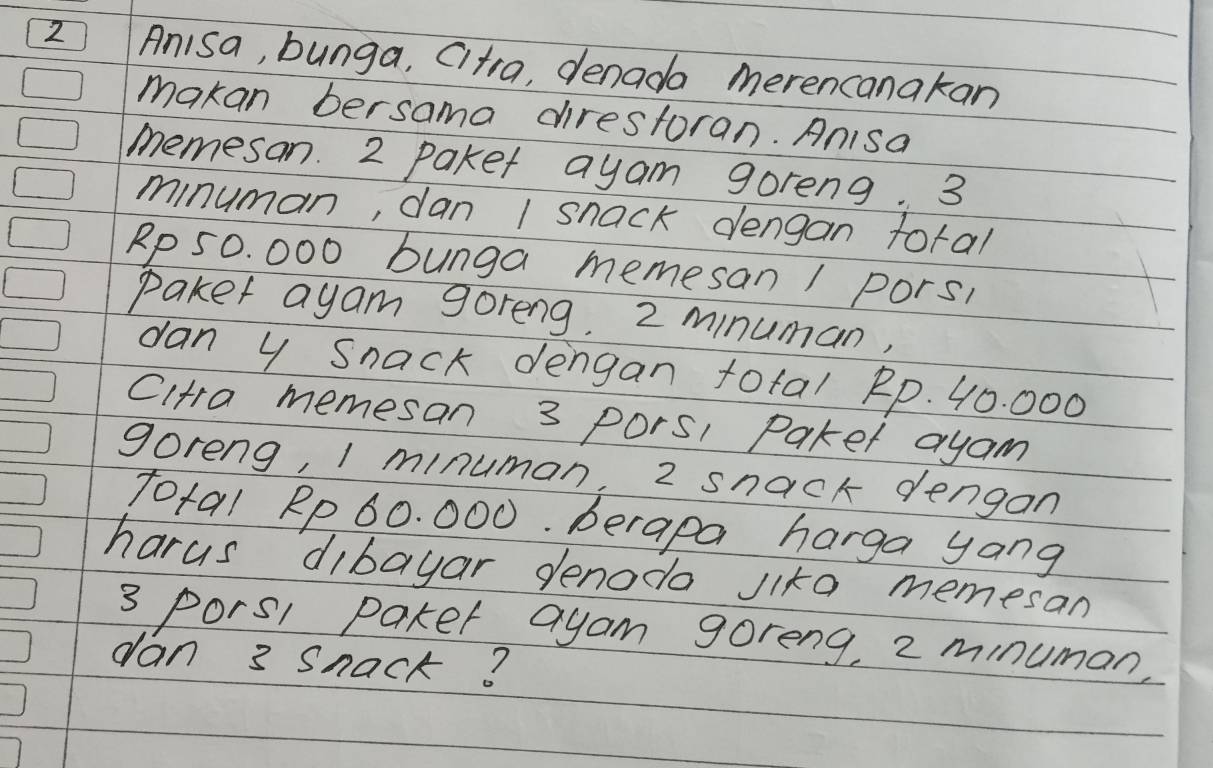 2 Anisa, bunga, Citra, denada merencanakan
makan bersama direstoran. Anisa
memesan. 2 paket ayam goreng, 3
minuman, dan 1 snack dengan total
Rp 50.000 bunga memesan 1 porsi
paket ayam goreng. 2 minuman,
dan 4 snack dengan total Rp. 40.000
Citra memesan 3 porsi paket ayam
goreng, 1 minuman, 2 snack dengan
Total Rp 60.000. berapa harga yang
harus dibayar denada jika memesan
3 porsi paket ayam goreng, 2 minuman,
dan 3 snack?